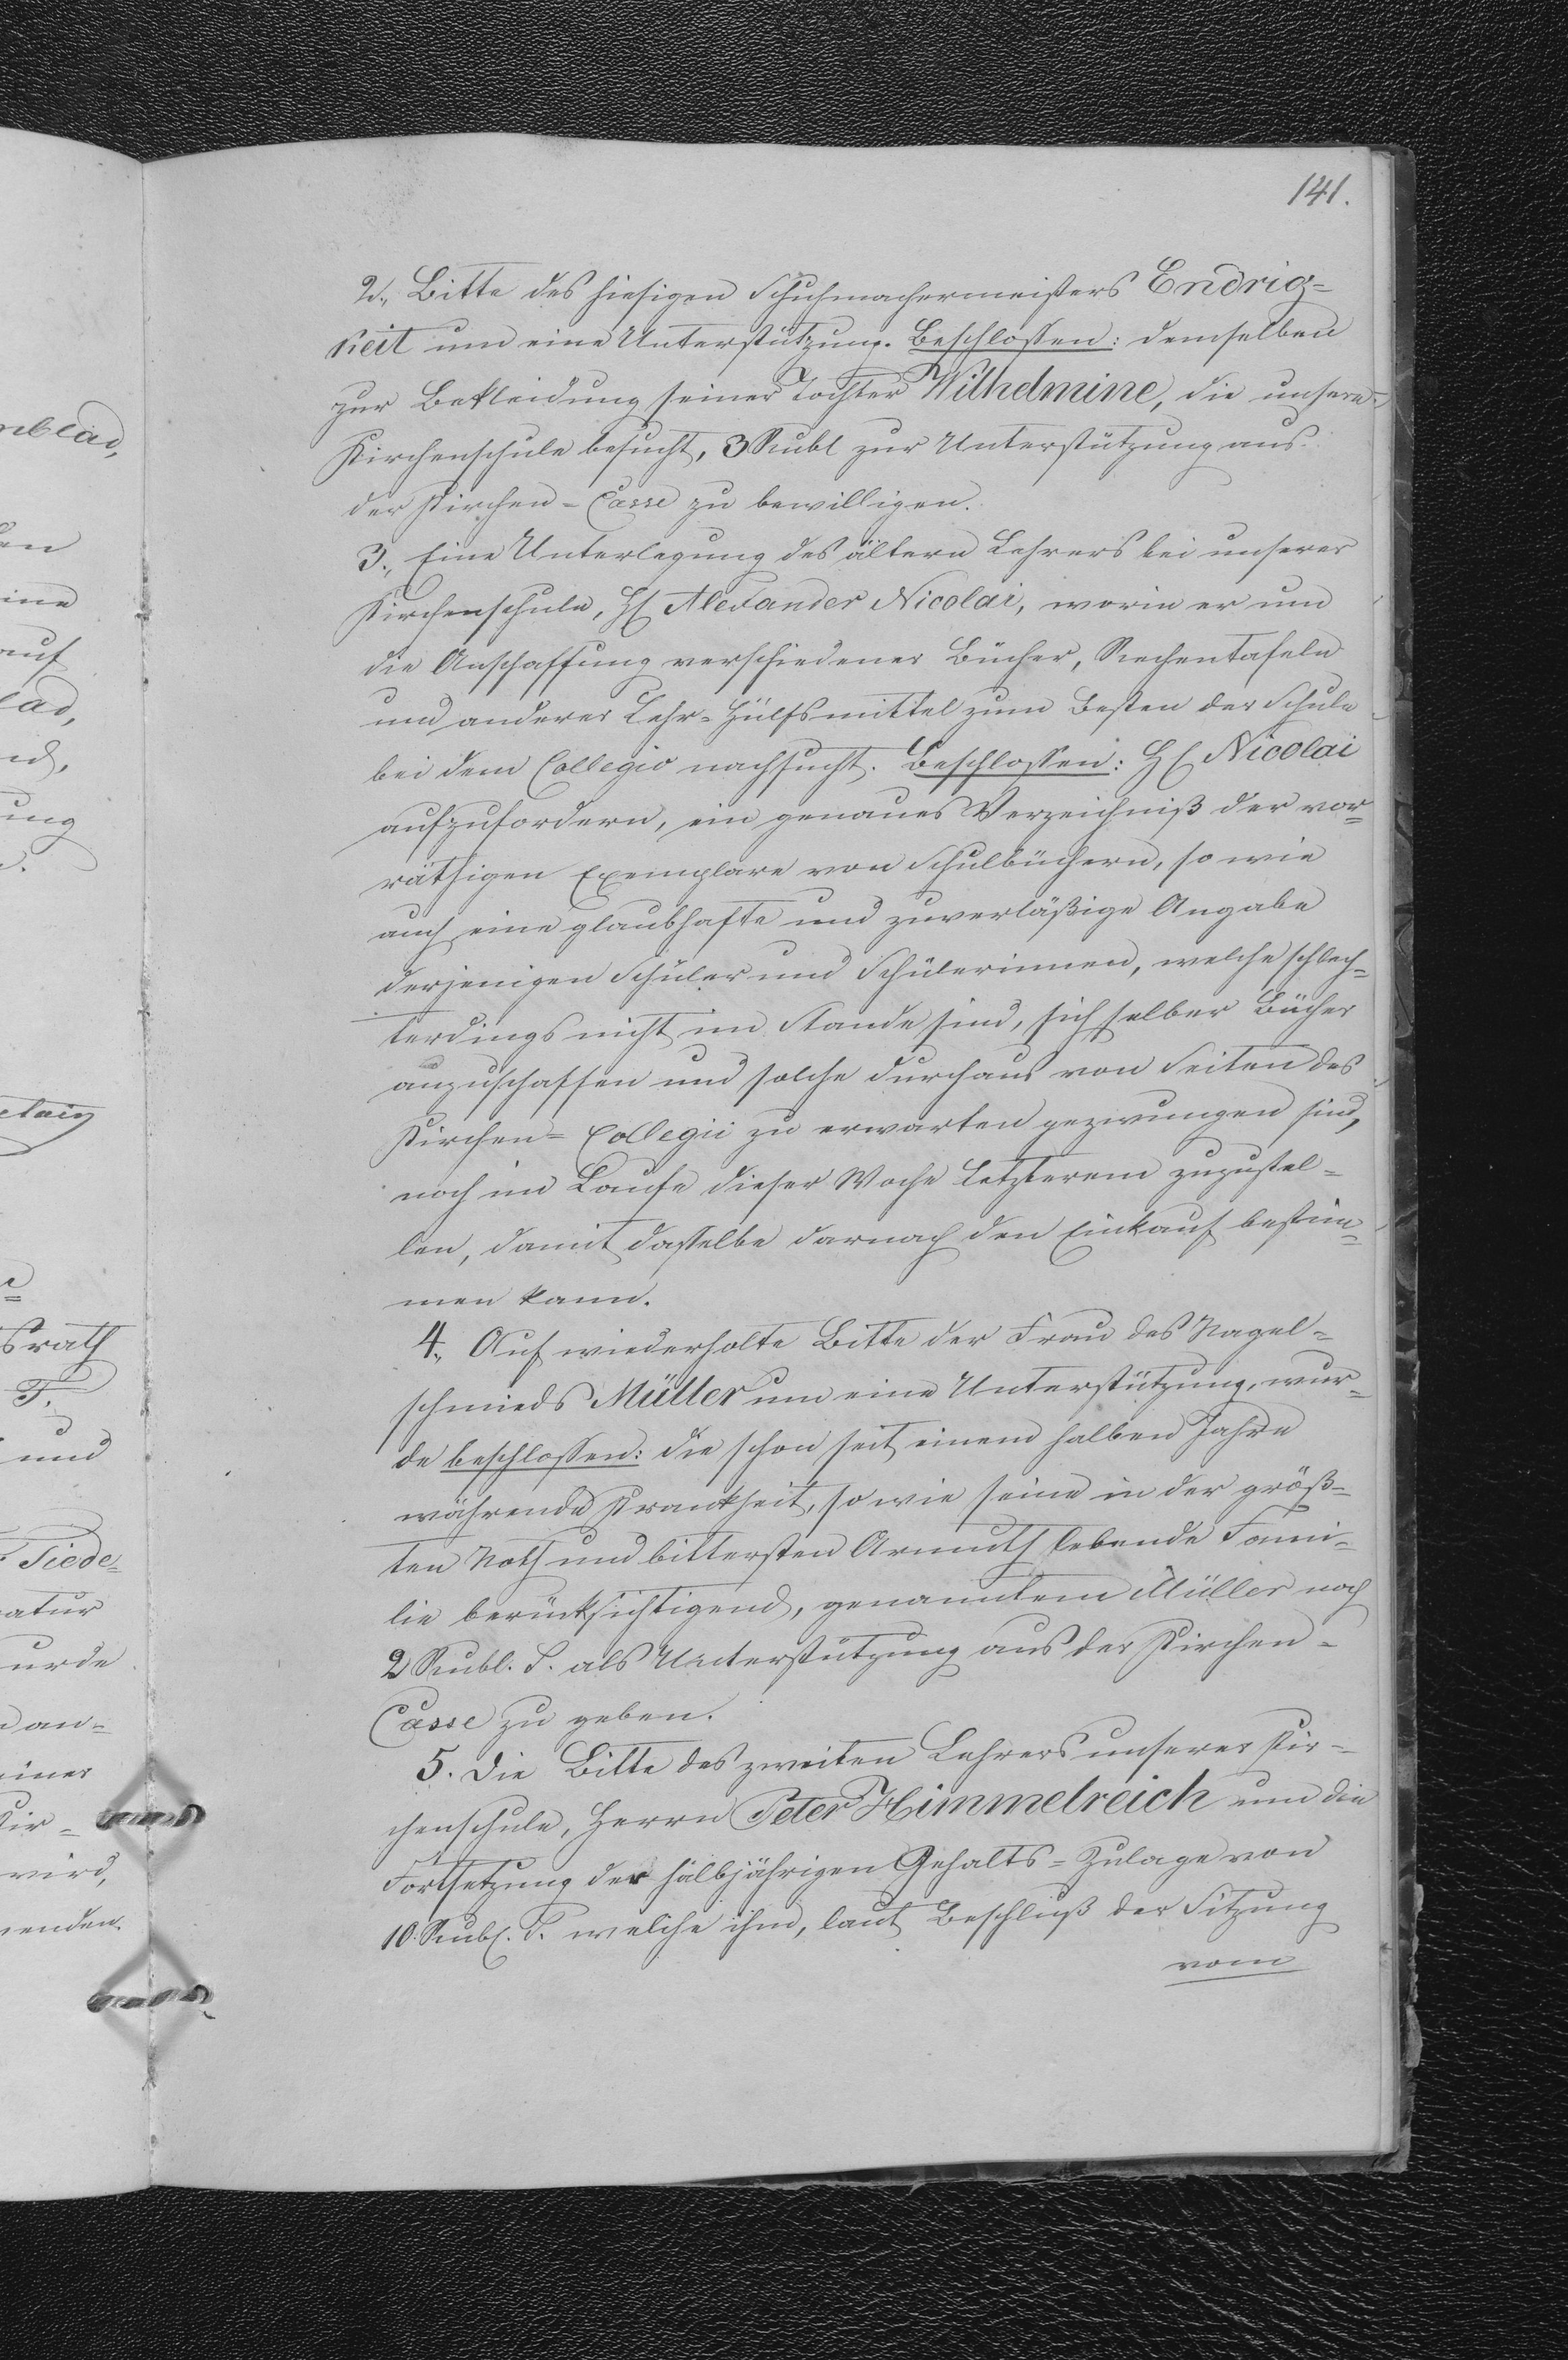 141.
2., Bitte des hiesigen Schuhmachermeisters Endrig=
keit um eine Unterstützung. Beschlossen: demselben
zur Bekleidung seiner Tochter Wilhelmine, die unsere
Kirchenschule besucht, 3 Rubl zur Unterstützung aus
der Kirchen=Casse zu bewilligen.
3., Eine Unterlegung des ältern Lehrers bei unserer
Kirchenschule, H Alexander Nicolai, worin er um
die Anschaffung verschiedener Bücher, Rechentafeln
und anderer Lehr=Hülfsmittel zum Besten der Schule
bei dem Collegio nachsucht. Beschlossen: H Nicolai
aufzufordern, ein genaues Verzeichniß der vor=
räthigen Exemplare von Schulbüchern, so wie
auch eine glaubhafte und zuverläßige Angabe
derjenigen Schüler und Schülerinnen, welche schlech=
terdings nicht im Stande sind, sich selber Bücher
anzuschaffen und solche durchaus von Seiten des
Kirchen=Collegii zu erwarten gezwungen sind,
noch im Laufe dieser Woche Letzterem zuzustel=
len, damit dasselbe darnach den Einkauf bestim=
men kann.
4., Auf wiederholte Bitte der Frau des Nagel=
schmieds Müller um eine Unterstützung, wur=
de beschlossen: die schon seit einem halben Jahre
währende Krankheit, so wie seine in der größ=
ten Noth und bittersten Armuth lebende Fami=
lie berücksichtigend, genanntem Müller noch
2 Rubl. S. als Unterstützung aus der Kirchen=
Casse zu geben.
5. Die Bitte des zweiten Lehrers unserer Kir=
chenschule, Herrn Peter Himmelreich um die
Fortsetzung der halbjährigen Gehalts=Zulage von
10. Rub. S. welche ihm, laut Beschluß der Sitzung
vom